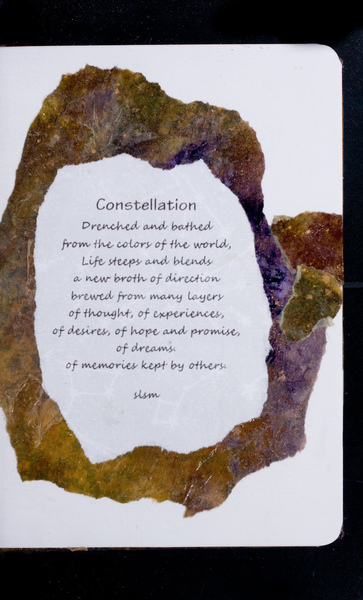 Constellation
Drenched and bathed
from the colors of the world,
Life steeps and blends
a new broth of direction
brewed from many layers
of thought, of experiences,
of desires, of hope and promise,
of dreams.
of memories kept by others.
slsm